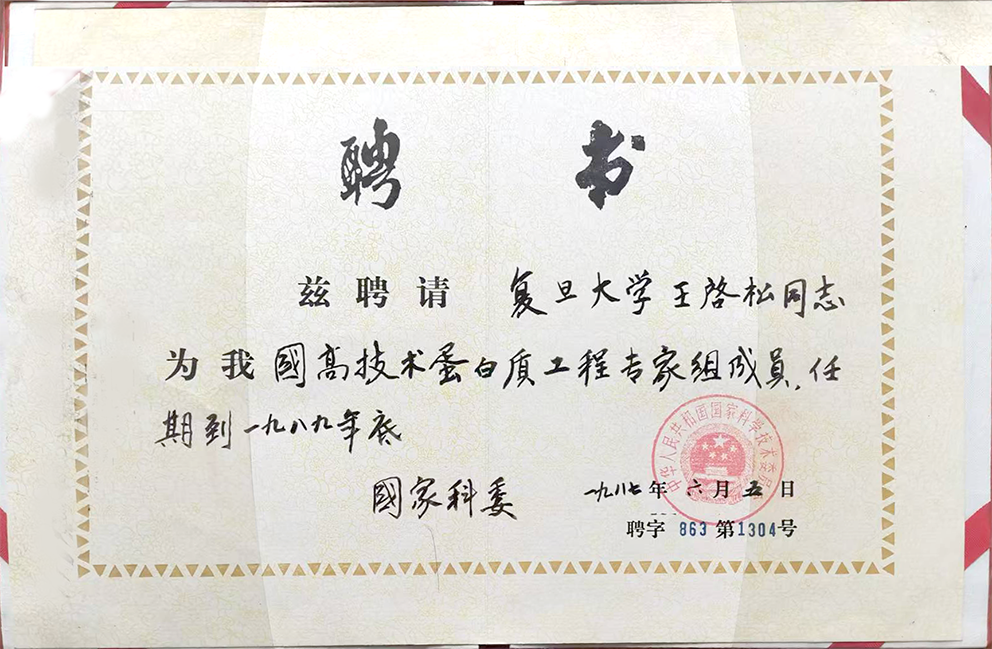 聘 书
兹聘请 复旦大学王啓松同志
为我國高技术蛋白质工程专家组成員,任
期到一九八九年底
國家科委 一九八七年六月五日
中华人民共和国国家科学技术委员会
聘字 863 第1304号